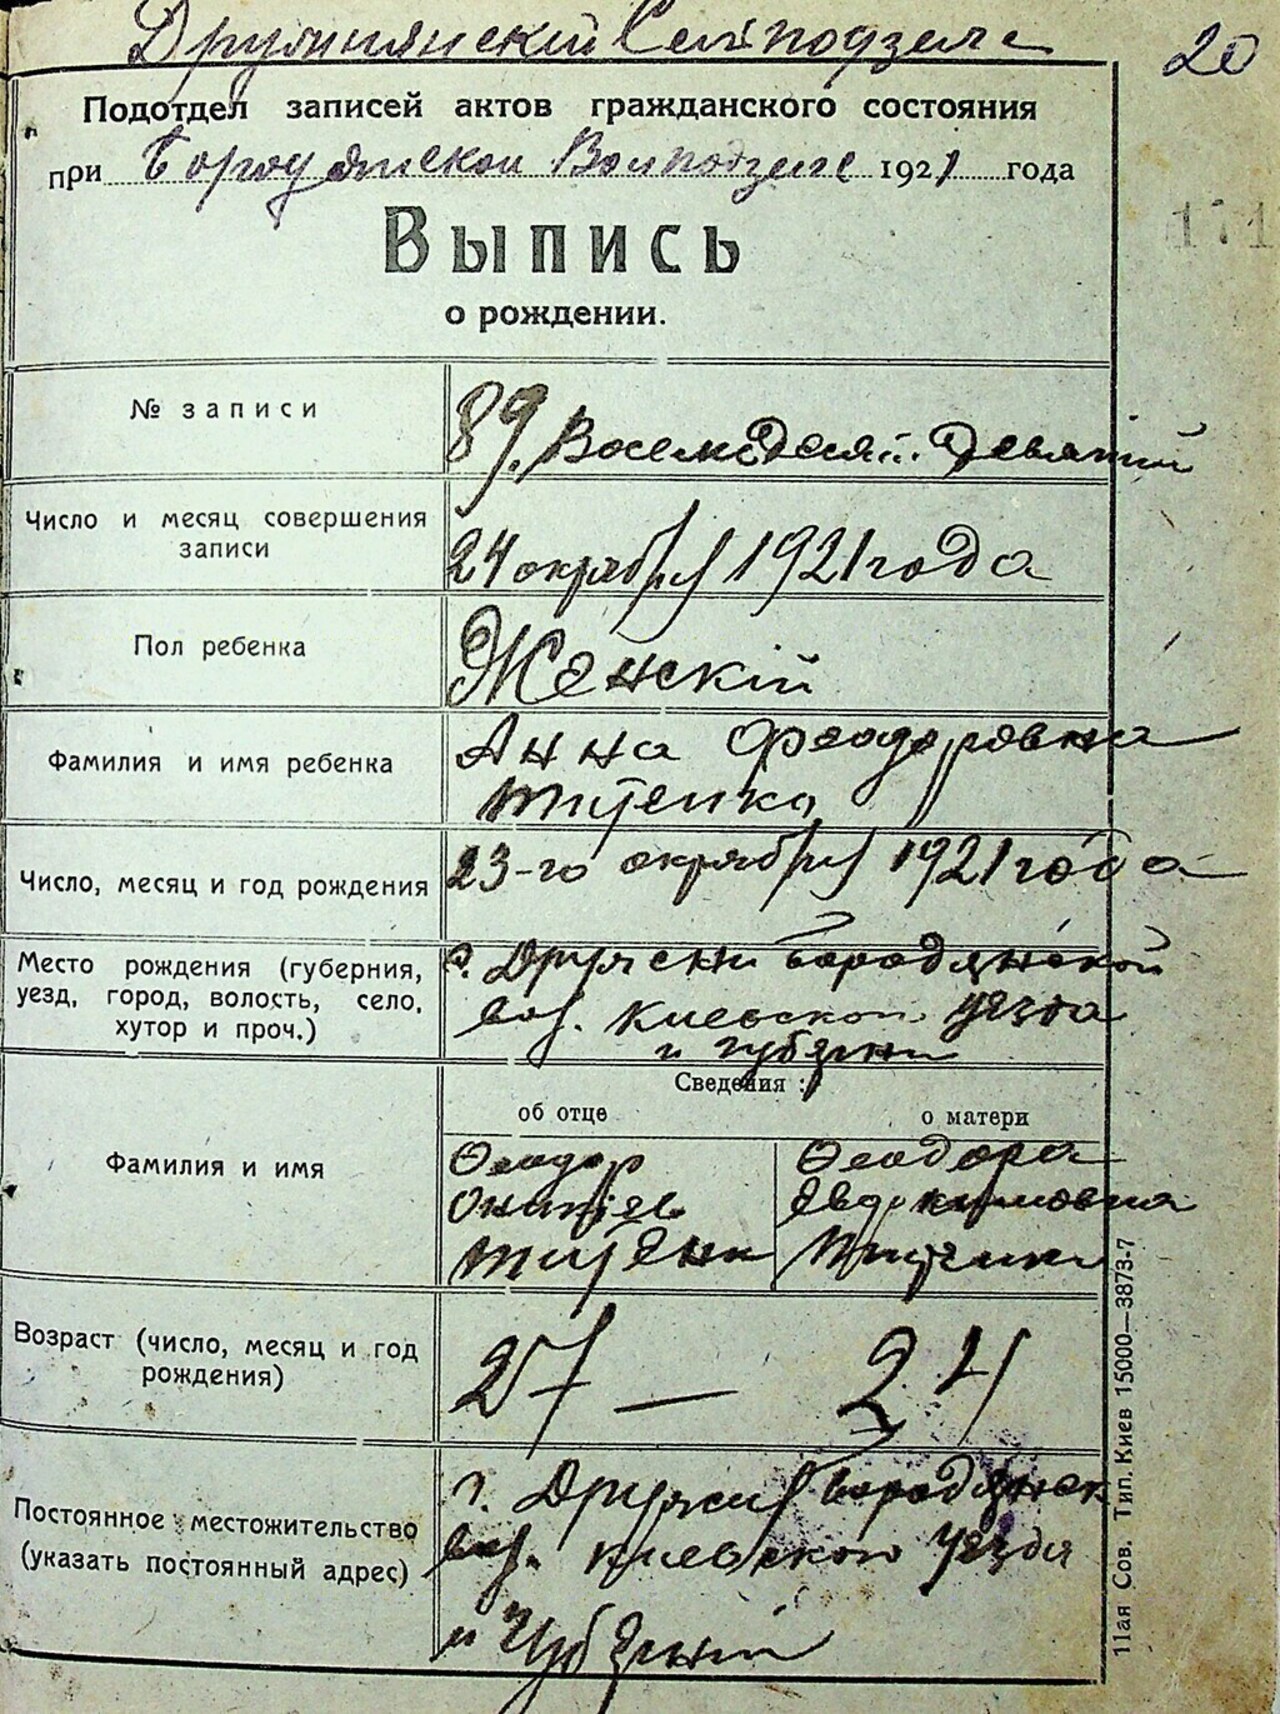 20
Подотдел записей актов гражданского состояния
при Бородянской 1921 года
171
Выпись
о рождении.
№ записи
89. Девятий
Число и месяц совершения записи
24 октября 1921 года
Пол ребенка
Женскій
Фамилия и имя ребенка
Анна Феодоровна
Число, месяц и год рождения
23-го октября 1921 года
Место рождения (губерния,
уезд, город, волость, село,
хутор и проч.)
Бородянской
вол. Киевской уезда
и губерни
Сведения:
об отце
о матери
Фамилия и имя
Феодор
Феодора
Евдокимовна
Возраст (число, месяц и год
рождения)
27 — 24
Постоянное местожительство
(указать постоянный адрес)
Бородянск
вол. Киевского уезда
и губерни
11ая Сов. Тип. Киев 15000—3873-7